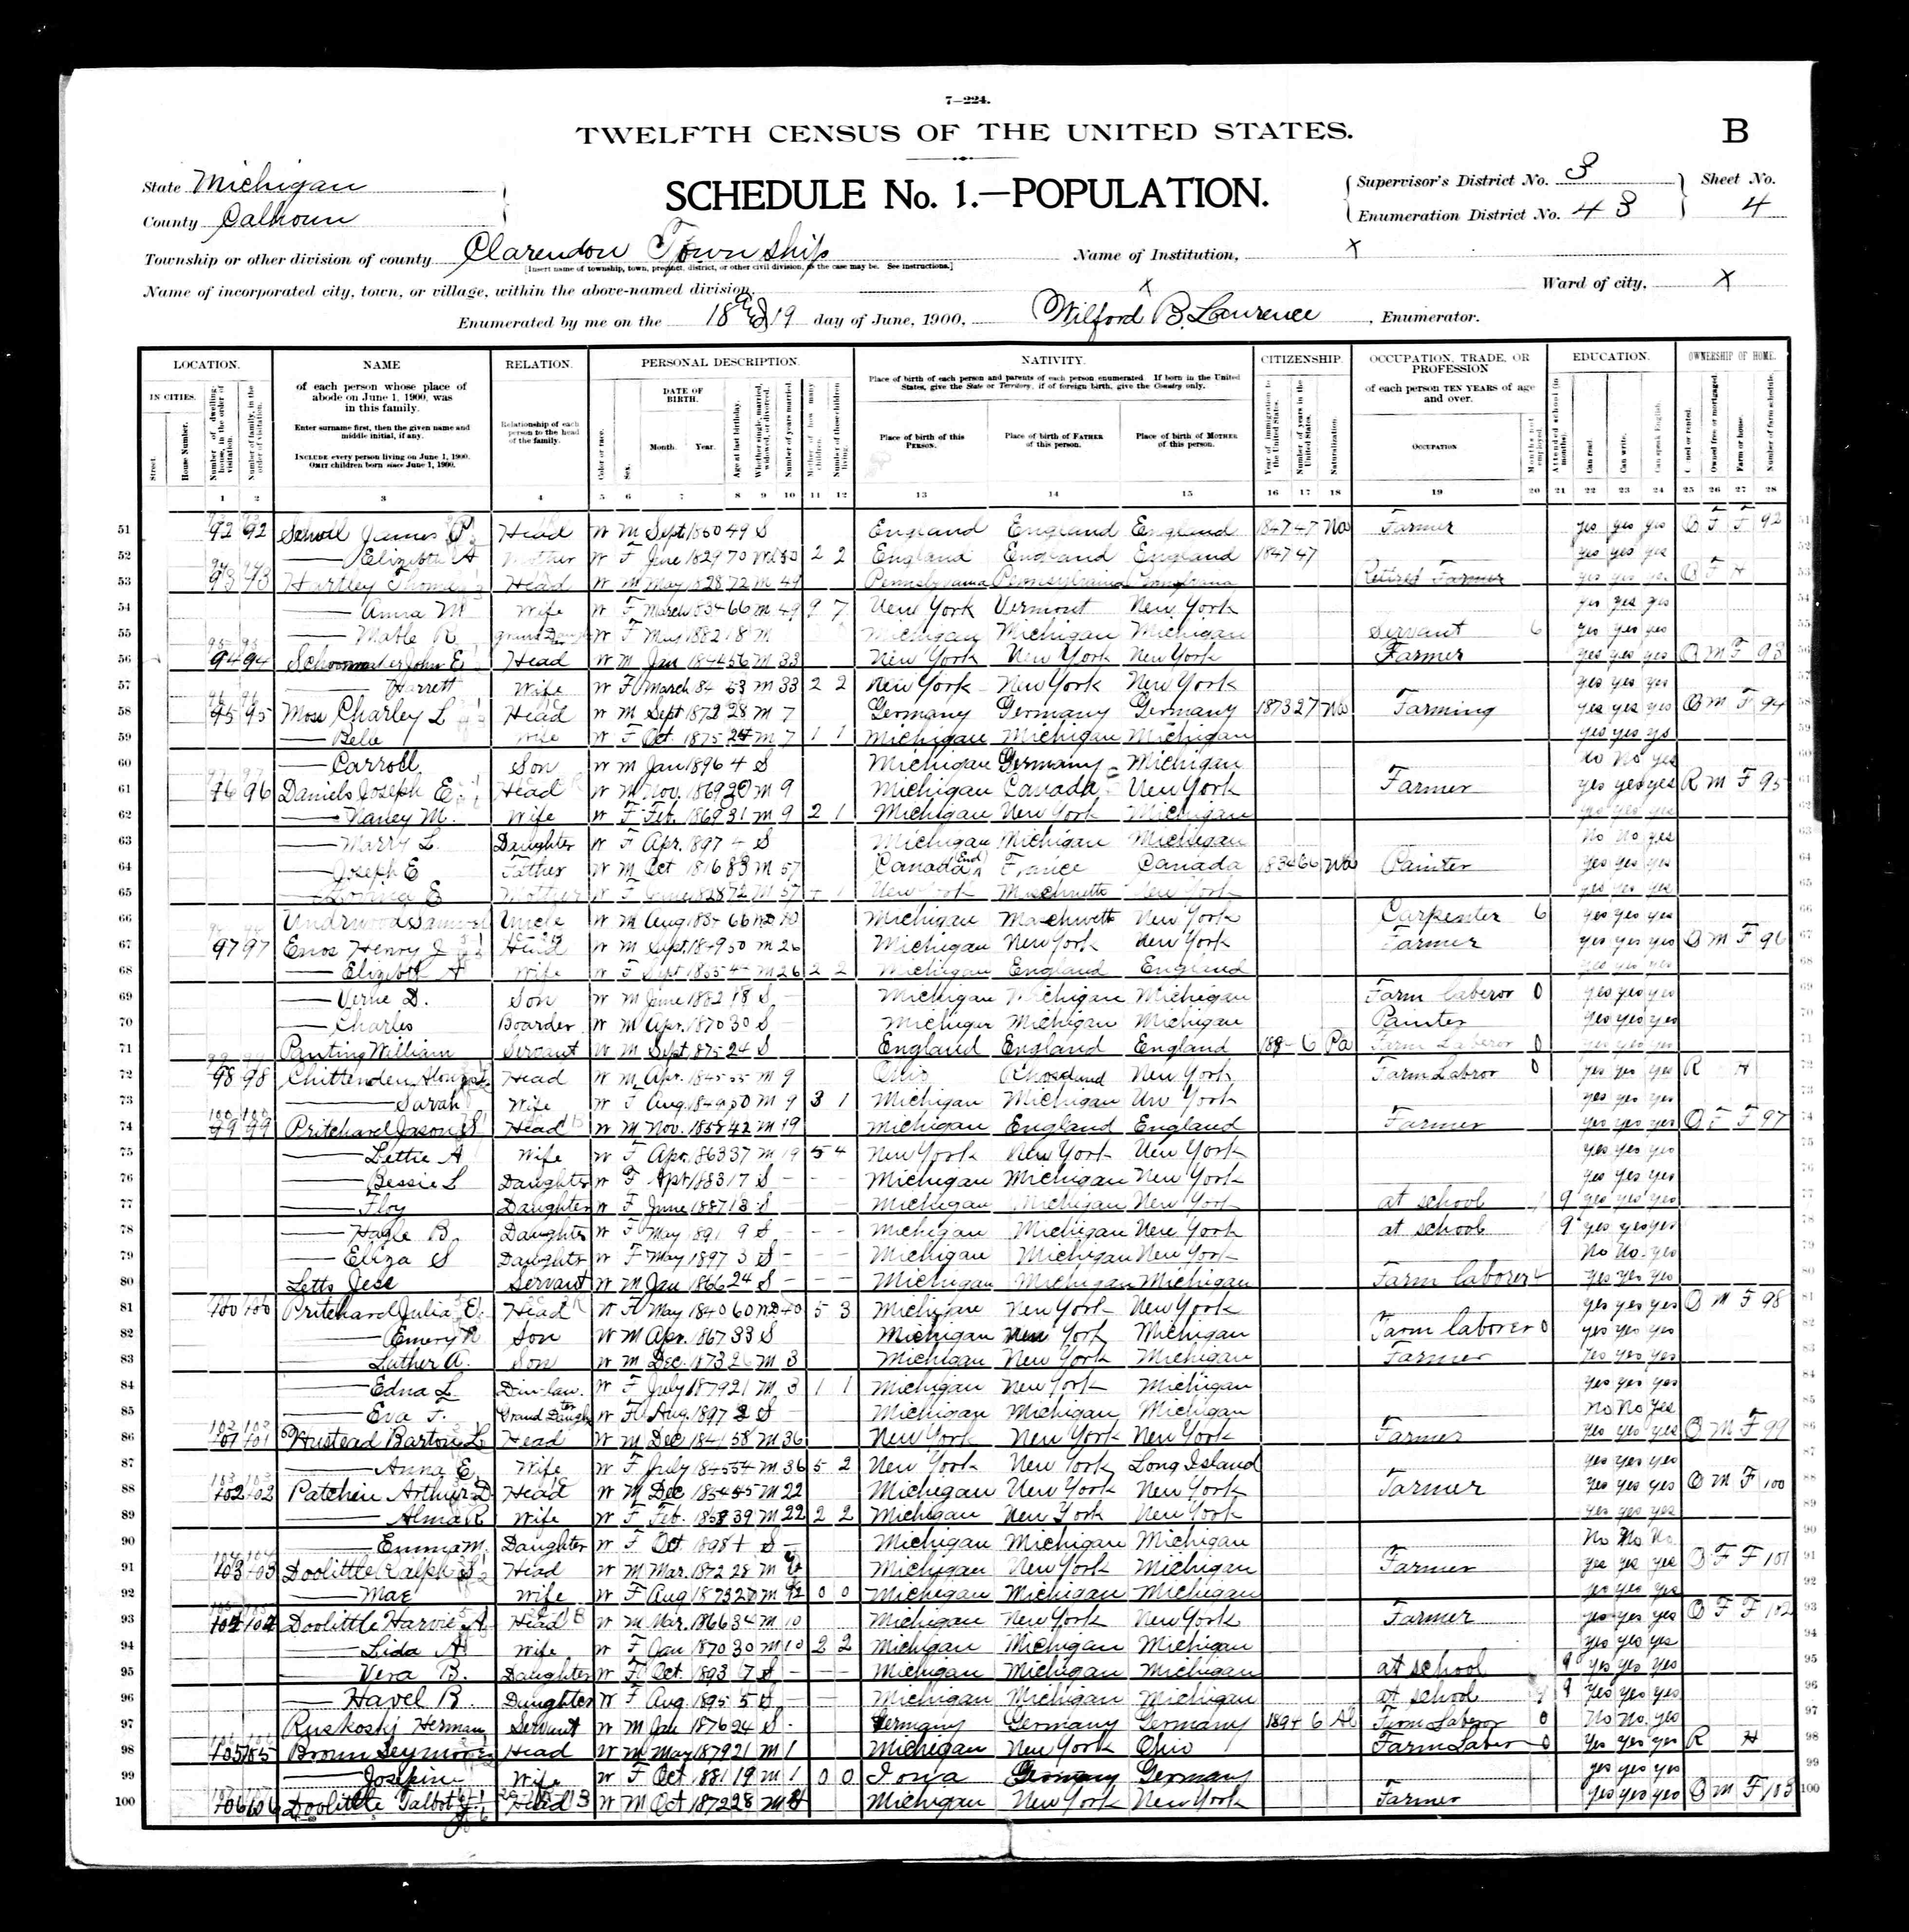 7—224.
TWELFTH CENSUS OF THE UNITED STATES.
B
State Michigan
County Calhoun
SCHEDULE No. 1.—POPULATION.
Supervisor's District No. 3
Enumeration District No. 43
Sheet No.
4
Township or other division of county Clarendon Township
[Insert name of township, town, precinct, district, or other civil division, as the case may be. See instructions.]
Name of Institution, X
Name of incorporated city, town, or village, within the above-named division, X
Ward of city, X
Enumerated by me on the 18 and 19 day of June, 1900, Wilford B. Laurence, Enumerator.
LOCATION. NAME RELATION. PERSONAL DESCRIPTION. NATIVITY. CITIZENSHIP. OCCUPATION, TRADE, OR PROFESSION EDUCATION. OWNERSHIP OF HOME.
IN CITIES.
Street.
House Number.
Number of dwelling-house, in the order of visitation.
Number of family, in the order of visitation.
of each person whose place of abode on June 1, 1900, was in this family.
Enter surname first, then the given name and middle initial, if any.
INCLUDE every person living on June 1, 1900.
OMIT children born since June 1, 1900.
Relationship of each person to the head of the family.
Color or race.
Sex.
DATE OF BIRTH.
Month. Year.
Age at last birthday.
Whether single, married, widowed, or divorced.
Number of years married.
Mother of how many children.
Number of these children living.
Place of birth of each person and parents of each person enumerated. If born in the United States, give the State or Territory; if of foreign birth, give the Country only.
Place of birth of this PERSON.
Place of birth of FATHER of this person.
Place of birth of MOTHER of this person.
Year of immigration to the United States.
Number of years in the United States.
Naturalization.
of each person TEN YEARS of age and over.
OCCUPATION
Months not employed.
Attended school (in months).
Can read.
Can write.
Can speak English.
Owned or rented.
Owned free or mortgaged.
Farm or home.
Number of farm schedule.
1 2 3 4 5 6 7 8 9 10 11 12 13 14 15 16 17 18 19 20 21 22 23 24 25 26 27 28
51 92 92 James P. Head W M Sept 1850 49 S England England England 1847 47 Na Farmer yes yes yes O F F 92
52 — Elizabeth A Mother W F June 1829 70 Wd 50 2 2 England England England 1847 47 yes yes yes
53 93 93 Hartley Thomas Head W M May 1828 72 M 49 Pennsylvania Pennsylvania Pennsylvania Retired Farmer yes yes yes O F H
54 — Anna M Wife W F March 1834 66 M 49 9 7 New York Vermont New York yes yes yes
55 — Mable R Grand Daugh W F May 1882 18 Michigan Michigan Michigan Servant 6 yes yes yes
56 94 94 Schoonmaker John E Head W M Jan 1844 56 M 33 New York New York New York Farmer yes yes yes O M F 93
57 — Harrett Wife W F March 84 53 M 33 2 2 New York New York New York yes yes yes
58 95 95 Moss Charley L Head W M Sept 1872 28 M 7 Germany Germany Germany 1873 27 Na Farming yes yes yes O M F 94
59 — Belle Wife W F Oct. 1875 24 M 7 1 1 Michigan Michigan Michigan yes yes yes
60 — Carroll Son W M Jan 1896 4 S Michigan Germany Michigan No No yes
61 96 96 Daniels Joseph E Head W M Nov. 1869 30 M 9 Michigan Canada New York Farmer yes yes yes R M F 95
62 — Nancy M. Wife W F Feb. 1869 31 M 9 2 1 Michigan New York Michigan yes yes yes
63 — Marry L. Daughter W F Apr. 1897 4 S Michigan Michigan Michigan No No yes
64 — Joseph E Father W M Oct 1816 83 M 57 Canada (En) France Canada 1834 66 Na Painter yes yes yes
65 — E Mother W F June 1828 72 M 57 1 New York New York yes yes yes
66 Undrwood Samuel Uncle W M Aug 183 66 Wd 40 Michigan New York Carpenter 6 yes yes yes
67 97 97 Enos Henry J Head W M Sept. 1849 50 M 26 Michigan New York New York Farmer yes yes yes O M F 96
68 — Elizabeth A Wife W F Sept 1855 44 M 26 2 2 Michigan England England yes yes yes
69 — Verne D. Son W M June 1882 18 S Michigan Michigan Michigan Farm laberor 0 yes yes yes
70 — Charles Boarder W M Apr. 1870 30 S Michigan Michigan Michigan Painter yes yes yes
71 Panting William Servant W M Sept. 1875 24 S England England England 189- 6 Pa Farm Laberor 0 yes yes yes
72 98 98 Chittenden Alonzo Head W M Apr. 1845 55 M 9 Ohio New York Farm Labror 0 yes yes yes R H
73 — Sarah Wife W F Aug. 1849 50 M 9 3 1 Michigan Michigan New York yes yes yes
74 99 99 Pritchard Jason S Head W M Nov. 1858 42 M 19 Michigan England England Farmer yes yes yes O F F 97
75 — Lettie A Wife W F Apr. 1863 37 M 19 5 4 New York New York New York yes yes yes
76 — Bessie L Daughter W F Apr 1883 17 S Michigan Michigan New York yes yes yes
77 — Floy Daughter W F June 1887 13 S Michigan Michigan New York at school 9 yes yes yes
78 — Hazle B. Daughter W F May 1891 9 S Michigan Michigan New York at school 9 yes yes yes
79 — Eliza S Daughter W F May 1897 3 S Michigan Michigan New York No No yes
80 Letts Jese Servant W M Jan 1866 24 S Michigan Michigan Michigan Farm laborer yes yes yes
81 100 100 Pritchard Julia E. Head W F May 1840 60 Wd 40 5 3 Michigan New York New York yes yes yes O M F 98
82 — Emery R Son W M Apr. 1867 33 S Michigan New York Michigan Farm laborer 0 yes yes yes
83 — Luther A. Son W M Dec. 1873 26 M 3 Michigan New York Michigan Farmer yes yes yes
84 — Edna L. D in-law. W F July 1879 21 M 3 1 1 Michigan New York Michigan yes yes yes
85 — Eva F. Grand Daughter W F Aug. 1897 2 S Michigan Michigan Michigan no No yes
86 101 101 Hustead Barton L Head W M Dec 1841 58 M 36 New York New York New York Farmer yes yes yes O M F 99
87 — Anna E. Wife W F July 1845 54 M 36 5 2 New York New York Long Island yes yes yes
88 102 102 Patchin Arthur D Head W M Dec 1854 45 M 22 Michigan New York New York Farmer yes yes yes O M F 100
89 — Alma R Wife W F Feb. 1858 39 M 22 2 2 Michigan New York New York yes yes yes
90 — Emma M. Daughter W F Oct 1898 1 S Michigan Michigan Michigan No No No
91 103 103 Doolittle Ralph S Head W M Mar. 1872 28 M Michigan New York Michigan Farmer yes yes yes O F F 101
92 — Mae Wife W F Aug 1873 M 0 0 Michigan Michigan Michigan yes yes yes
93 104 104 Doolittle Harvie A Head W M Mar. 1866 34 M 10 Michigan New York New York Farmer yes yes yes O F F 102
94 — Lida A Wife W F Jan 1870 30 M 10 2 2 Michigan Michigan Michigan yes yes yes
95 — Vera B. Daughter W F Oct. 1893 7 S Michigan Michigan Michigan at school 9 yes yes yes
96 — Havel R. Daughter W F Aug. 1895 5 S Michigan Michigan Michigan at school 9 yes yes yes
97 Ruskoskj Herman Servant W M Jan 1876 24 S Germany Germany Germany 1894 6 Al Farm Laberor 0 No No yes
98 105 105 Brown Seymore Head W M May 1879 21 M 1 Michigan New York Ohio Farm Laber 0 yes yes yes R H
99 — Josepine Wife W F Oct 1881 19 M 1 0 0 Iowa Germany Germany yes yes yes
100 106 106 Doolittle Talbot Head W M Oct 1872 28 M Michigan New York New York Farmer yes yes yes O M F 103